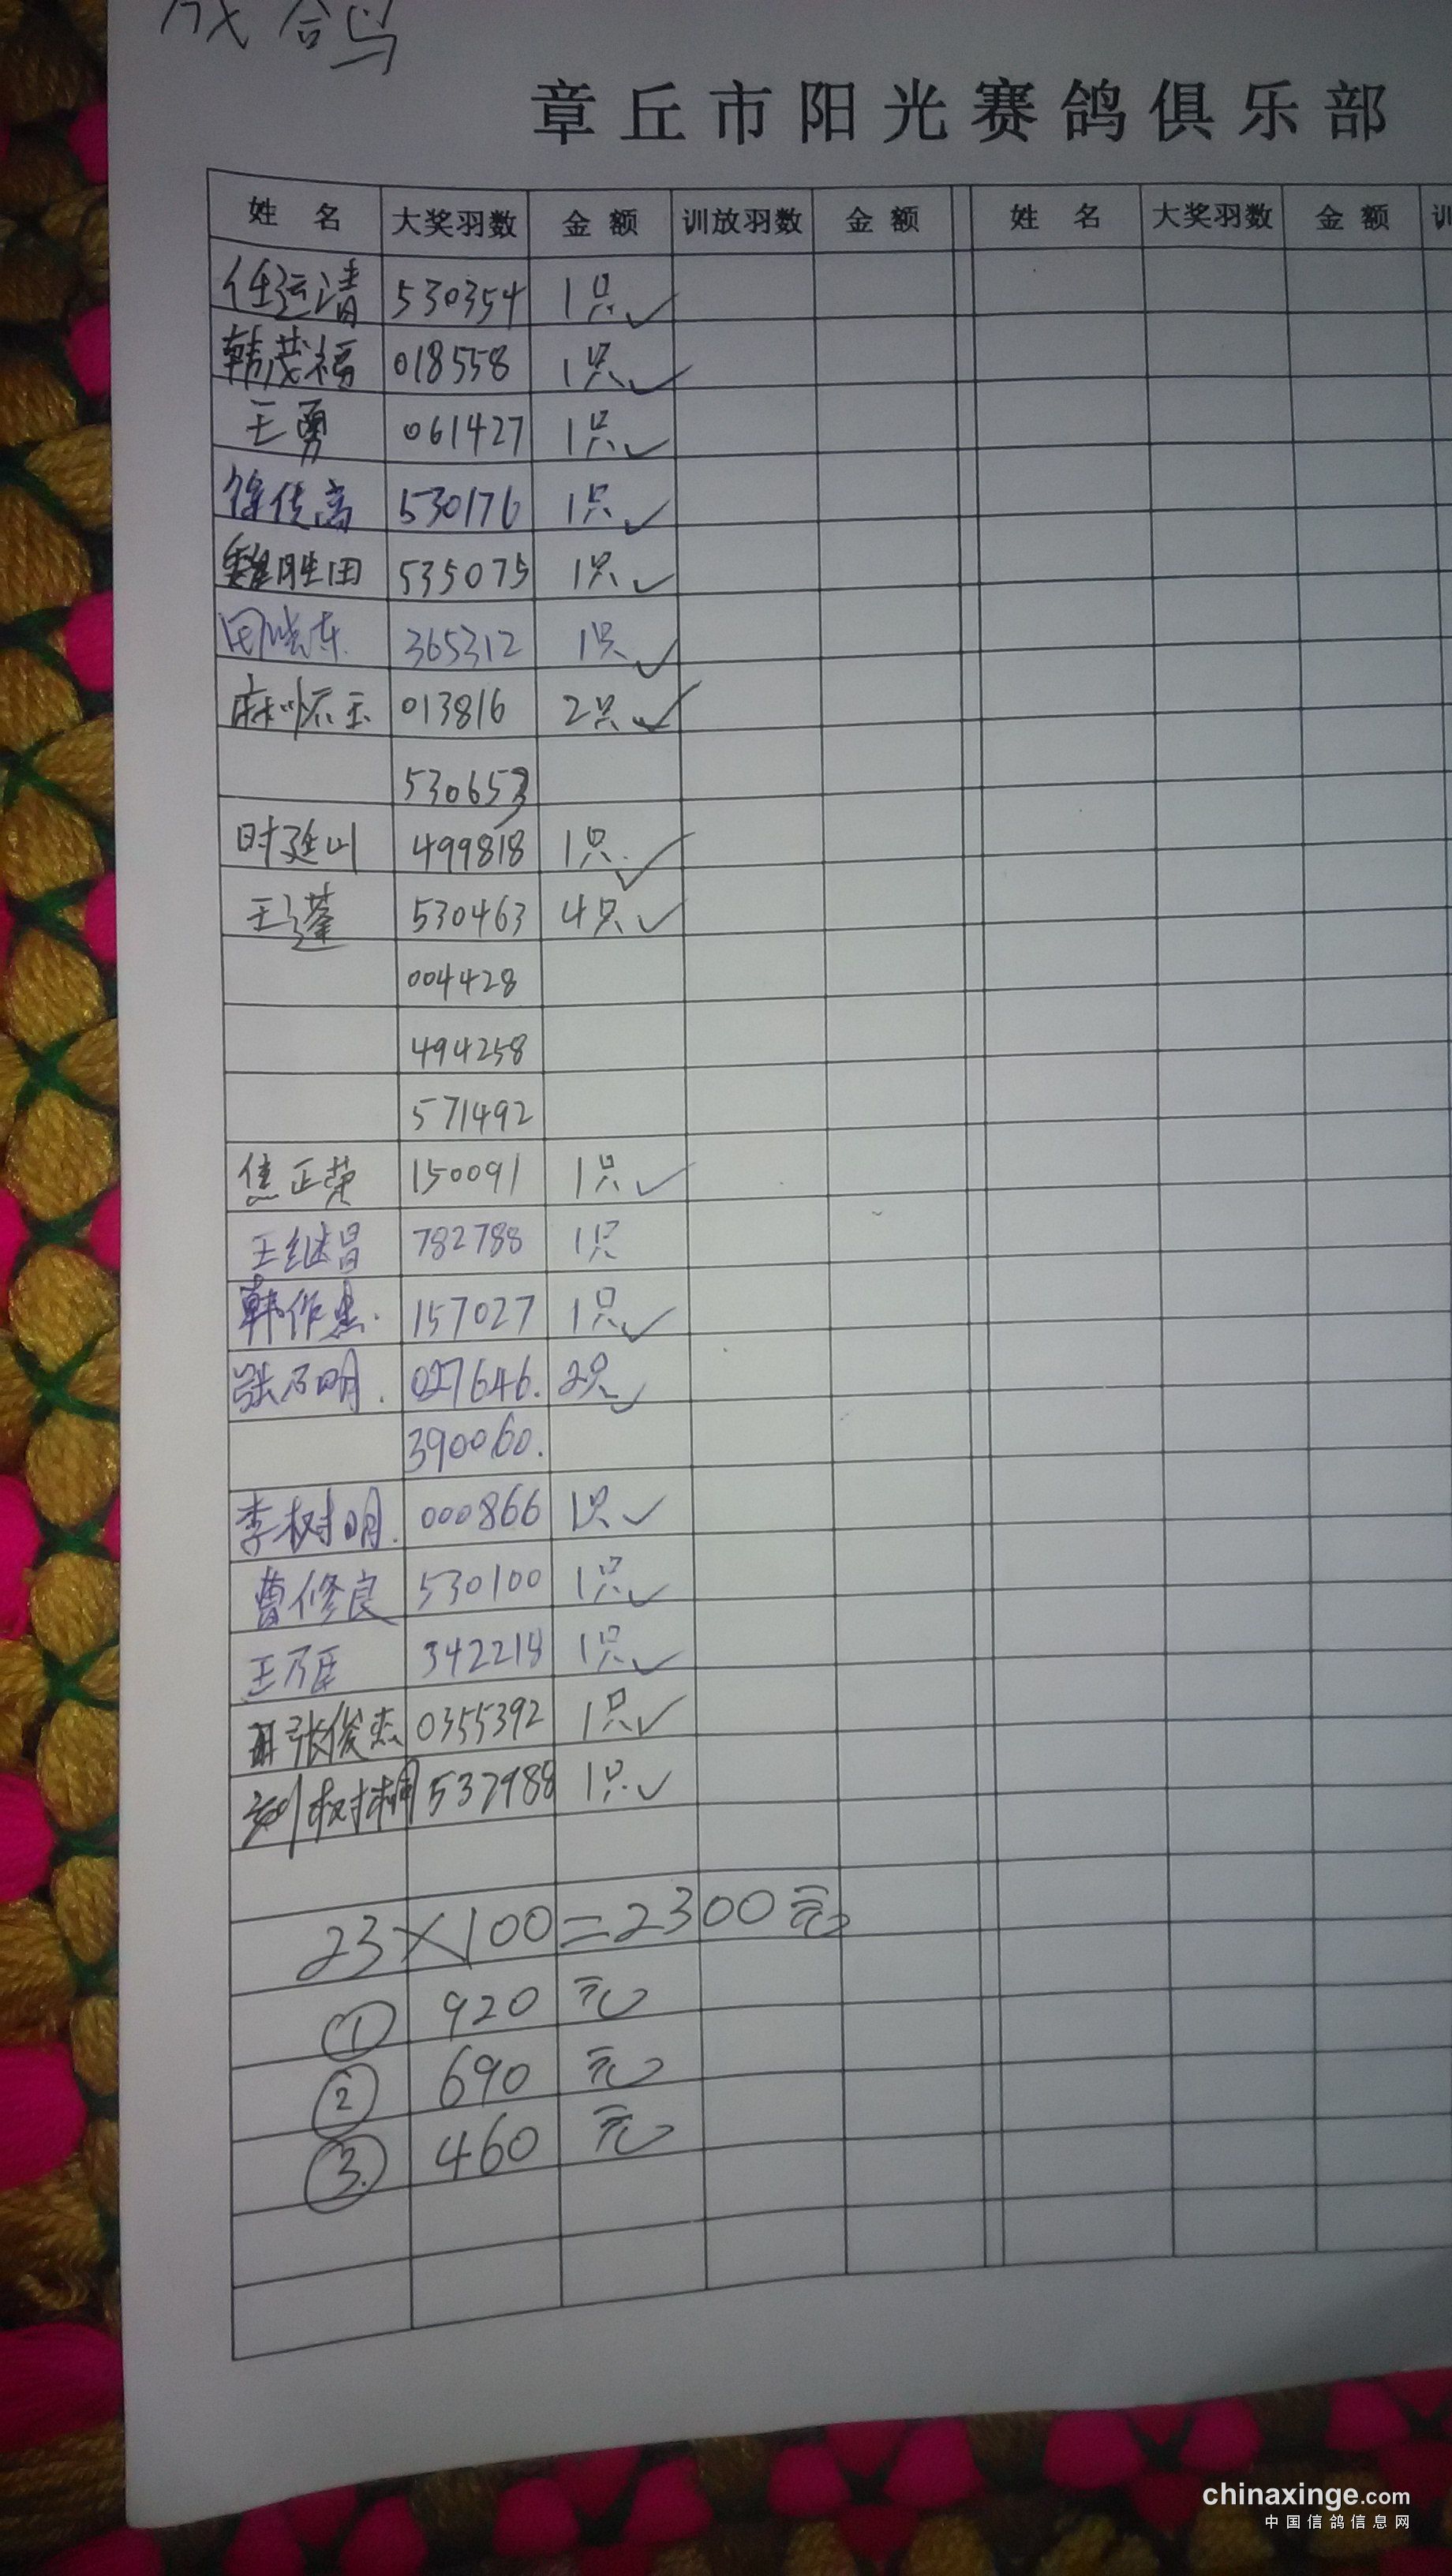 成鸽
章丘市阳光赛鸽俱乐部
姓 名 大奖羽数 金 额 训放羽数 金 额 姓 名 大奖羽数 金 额 训
任运清 530354 1只✓
韩茂福 018558 1只✓
王勇 061427 1只✓
徐传高 530176 1只✓
魏胜田 535075 1只✓
田晓东 365312 1只✓
麻怀玉 013816 2只✓
530653
时延山 499818 1只✓
王蓬 530463 4只✓
004428
494258
571492
焦正荣 150091 1只✓
王继昌 782788 1只
韩作忠 157027 1只✓
张乃明 027646. 2只✓
390060.
李树明 000866 1只✓
曹修良 530100 1只✓
王乃臣 342218 1只✓
张俊杰 0355392 1只✓
刘树 532988 1只✓
23×100=2300元
① 920 元
② 690 元
③ 460 元
chinaxinge.com
中国信鸽信息网